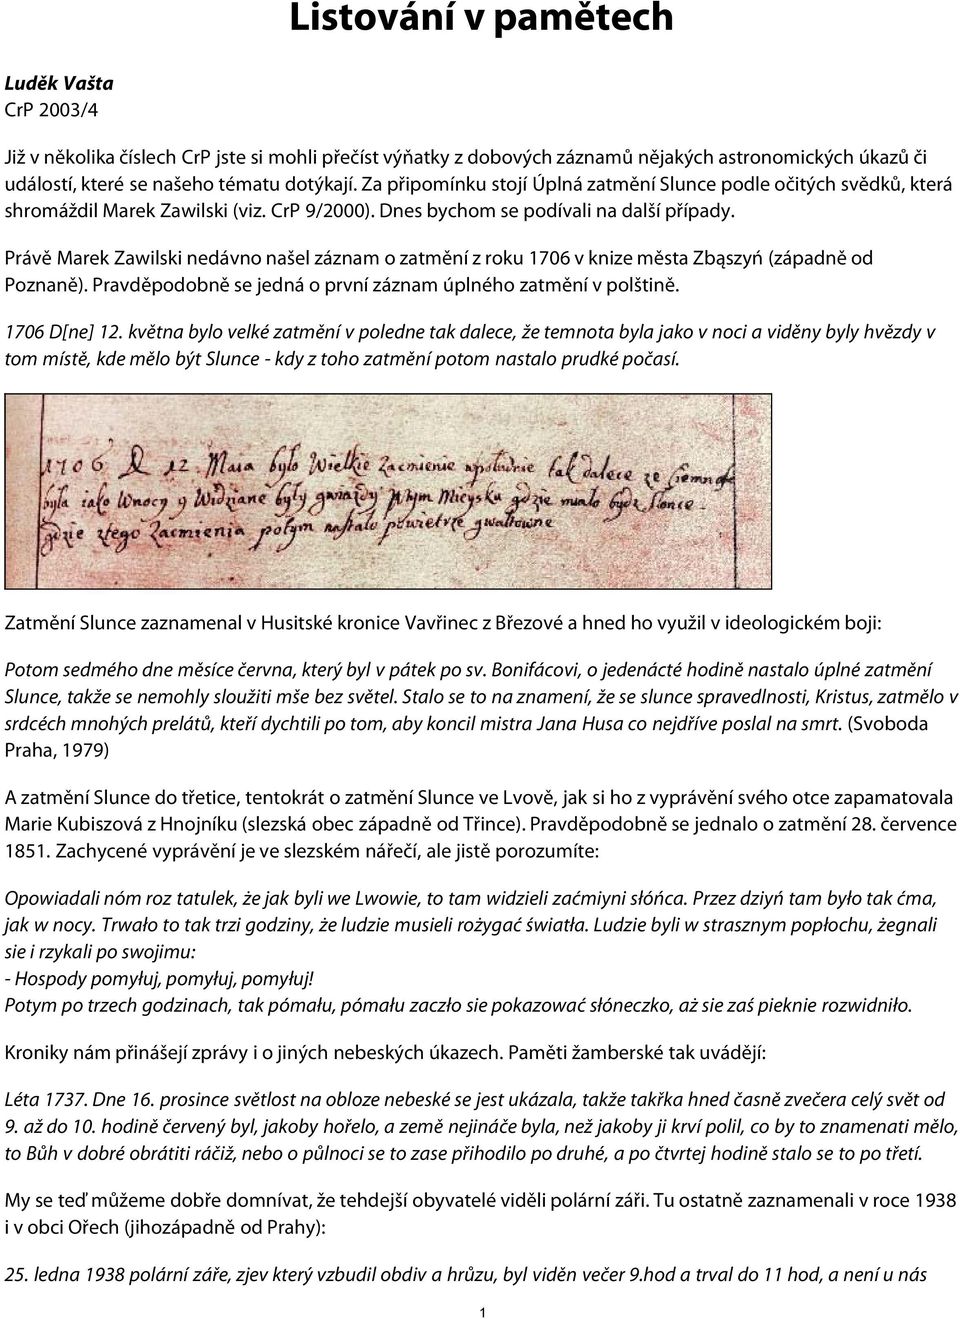 Listování v pamětech
Luděk Vašta
CrP 2003/4
Již v několika číslech CrP jste si mohli přečíst výňatky z dobových záznamů nějakých astronomických úkazů či
událostí, které se našeho tématu dotýkají. Za připomínku stojí Úplná zatmění Slunce podle očitých svědků, která
shromáždil Marek Zawilski (viz. CrP 9/2000). Dnes bychom se podívali na další případy.
Právě Marek Zawilski nedávno našel záznam o zatmění z roku 1706 v knize města Zbąszyń (západně od
Poznaně). Pravděpodobně se jedná o první záznam úplného zatmění v polštině.
1706 D[ne] 12. května bylo velké zatmění v poledne tak dalece, že temnota byla jako v noci a viděny byly hvězdy v
tom místě, kde mělo být Slunce - kdy z toho zatmění potom nastalo prudké počasí.
1706 D 12 Maia było Wielkie Zacmienie wpołudnie tak dalece ze Ciemnosc
była iako Wnocy y Widziane były gwiazdy Wtym Mieysku gdzie miało bydz Słonce
gdzie ztego Zacmienia potym nastało powietrze gwałtowne
Zatmění Slunce zaznamenal v Husitské kronice Vavřinec z Březové a hned ho využil v ideologickém boji:
Potom sedmého dne měsíce června, který byl v pátek po sv. Bonifácovi, o jedenácté hodině nastalo úplné zatmění
Slunce, takže se nemohly sloužiti mše bez světel. Stalo se to na znamení, že se slunce spravedlnosti, Kristus, zatmělo v
srdcéch mnohých prelátů, kteří dychtili po tom, aby koncil mistra Jana Husa co nejdříve poslal na smrt. (Svoboda
Praha, 1979)
A zatmění Slunce do třetice, tentokrát o zatmění Slunce ve Lvově, jak si ho z vyprávění svého otce zapamatovala
Marie Kubiszová z Hnojníku (slezská obec západně od Třince). Pravděpodobně se jednalo o zatmění 28. července
1851. Zachycené vyprávění je ve slezském nářečí, ale jistě porozumíte:
Opowiadali nóm roz tatulek, że jak byli we Lwowie, to tam widzieli zaćmiyni słóńca. Przez dziyń tam było tak ćma,
jak w nocy. Trwało to tak trzi godziny, że ludzie musieli rożygać światła. Ludzie byli w strasznym popłochu, żegnali
sie i rzykali po swojimu:
- Hospody pomyłuj, pomyłuj, pomyłuj!
Potym po trzech godzinach, tak pómału, pómału zaczło sie pokazować słóneczko, aż sie zaś pieknie rozwidniło.
Kroniky nám přinášejí zprávy i o jiných nebeských úkazech. Paměti žamberské tak uvádějí:
Léta 1737. Dne 16. prosince světlost na obloze nebeské se jest ukázala, takže takřka hned časně zvečera celý svět od
9. až do 10. hodině červený byl, jakoby hořelo, a země nejináče byla, než jakoby ji krví polil, co by to znamenati mělo,
to Bůh v dobré obrátiti ráčiž, nebo o půlnoci se to zase přihodilo po druhé, a po čtvrtej hodině stalo se to po třetí.
My se teď můžeme dobře domnívat, že tehdejší obyvatelé viděli polární záři. Tu ostatně zaznamenali v roce 1938
i v obci Ořech (jihozápadně od Prahy):
25. ledna 1938 polární záře, zjev který vzbudil obdiv a hrůzu, byl viděn večer 9.hod a trval do 11 hod, a není u nás
1